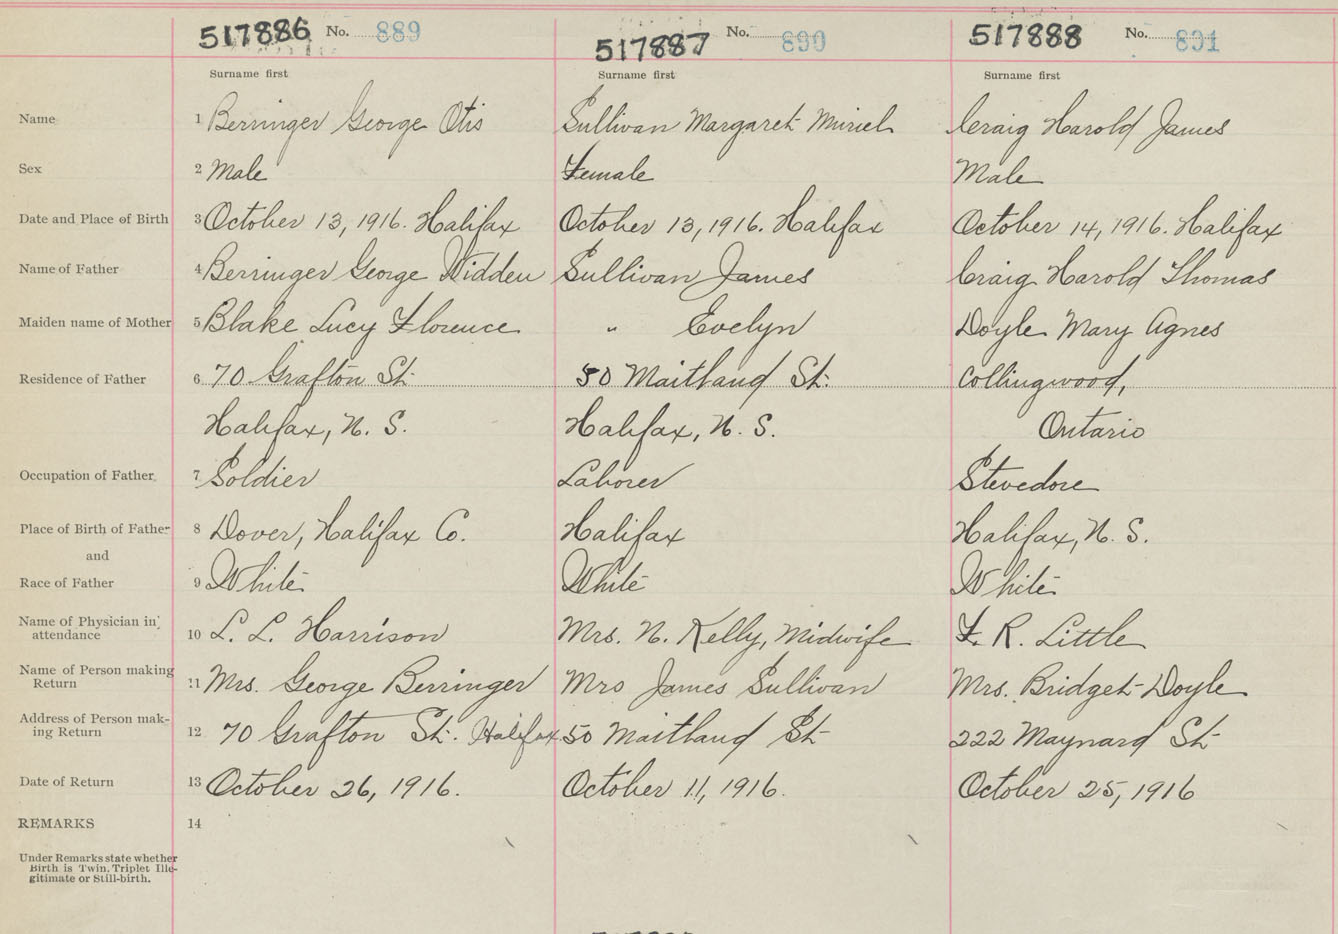 517886 No. 889 517887 No. 890 517888 No. 891
Surname first Surname first Surname first
Name 1 Berringer George Otis Sullivan Margaret Muriel Craig Harold James
Sex 2 Male Female Male
Date and Place of Birth 3 October 13, 1916. Halifax October 13, 1916. Halifax October 14, 1916. Halifax
Name of Father 4 Berringer George Widden Sullivan James Craig Harold Thomas
Maiden name of Mother 5 Blake Lucy Florence " Evelyn Doyle Mary Agnes
Residence of Father 6 70 Grafton St. 50 Maitland St. Collingwood,
Halifax, N. S. Halifax, N. S. Ontario
Occupation of Father 7 Soldier Laborer Stevedore
Place of Birth of Father 8 Dover, Halifax Co. Halifax Halifax, N. S.
and
Race of Father 9 White White White
Name of Physician in attendance 10 L. L. Harrison Mrs. N. Kelly, Midwife F. R. Little
Name of Person making Return 11 Mrs. George Berringer Mrs James Sullivan Mrs. Bridget Doyle
Address of Person mak-
ing Return 12 70 Grafton St. Halifax 50 Maitland St 222 Maynard St
Date of Return 13 October 26, 1916. October 11, 1916. October 25, 1916
REMARKS 14
Under Remarks state whether
Birth is Twin. Triplet Ille-
gitimate or Still-birth.